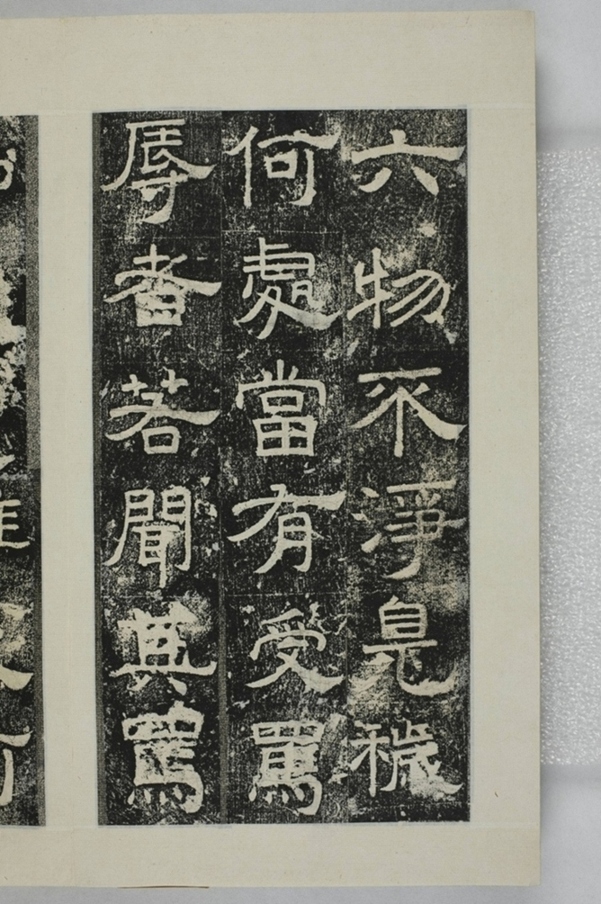 六物不淨臭穢
何處當有受罵
辱者若聞其罵